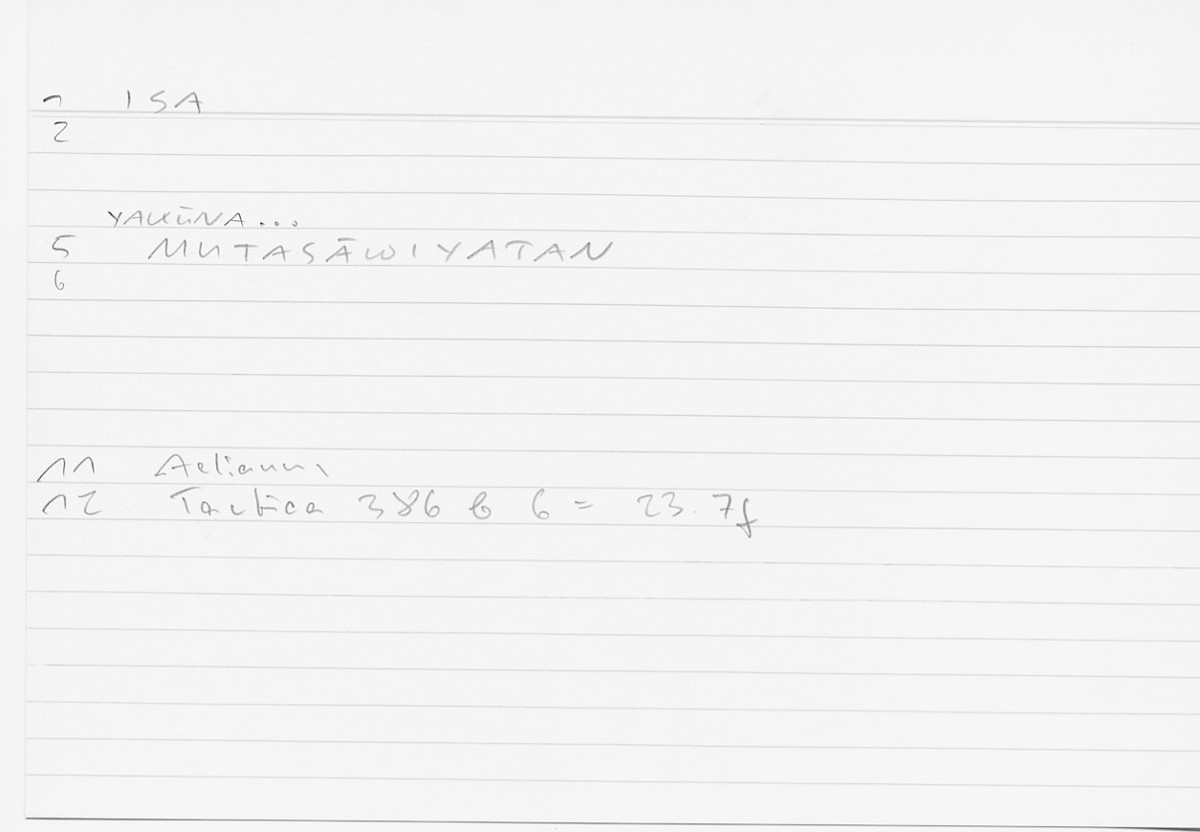 1 ISA
2
YAKŪNA...
5 MUTASĀWIYATAN
6
11 Aelianus
12 Tactica 386 b 6 = 23.7f